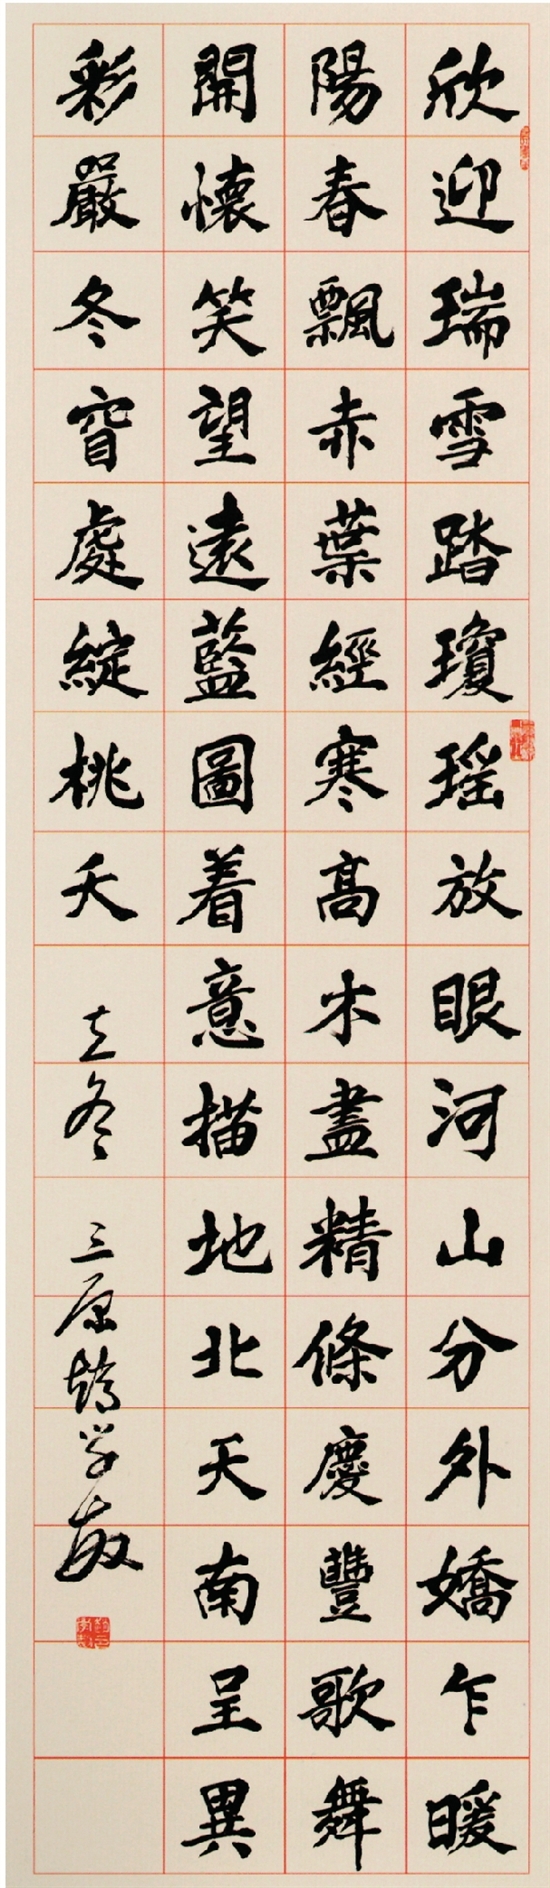 欣迎瑞雪踏瓊瑶放眼河山分外嬌乍暖
陽春飄赤葉經寒高木盡精條慶豐歌舞
開懷笑望遠藍圖着意描地北天南呈異
彩嚴冬窅處綻桃夭
立冬
三原
学敏